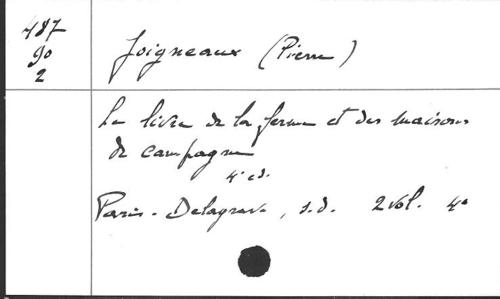 487
90
2
Joigneaux (Pierre)
Le livre de la ferme et des maisons
de campagne
4e ed.
Paris - Delagrave, s.d. 2 vol. 4o